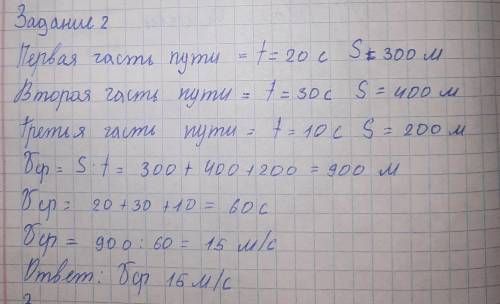 Задание 2
Первая часть пути = t = 20 с S = 300 м
Вторая часть пути = t = 30 с S = 400 м
третья часть пути = t = 10 с S = 200 м
υср = S : t = 300 + 400 + 200 = 900 м
υср = 20 + 30 + 10 = 60 с
υср = 900 : 60 = 15 м/с
Ответ: υср 15 м/с